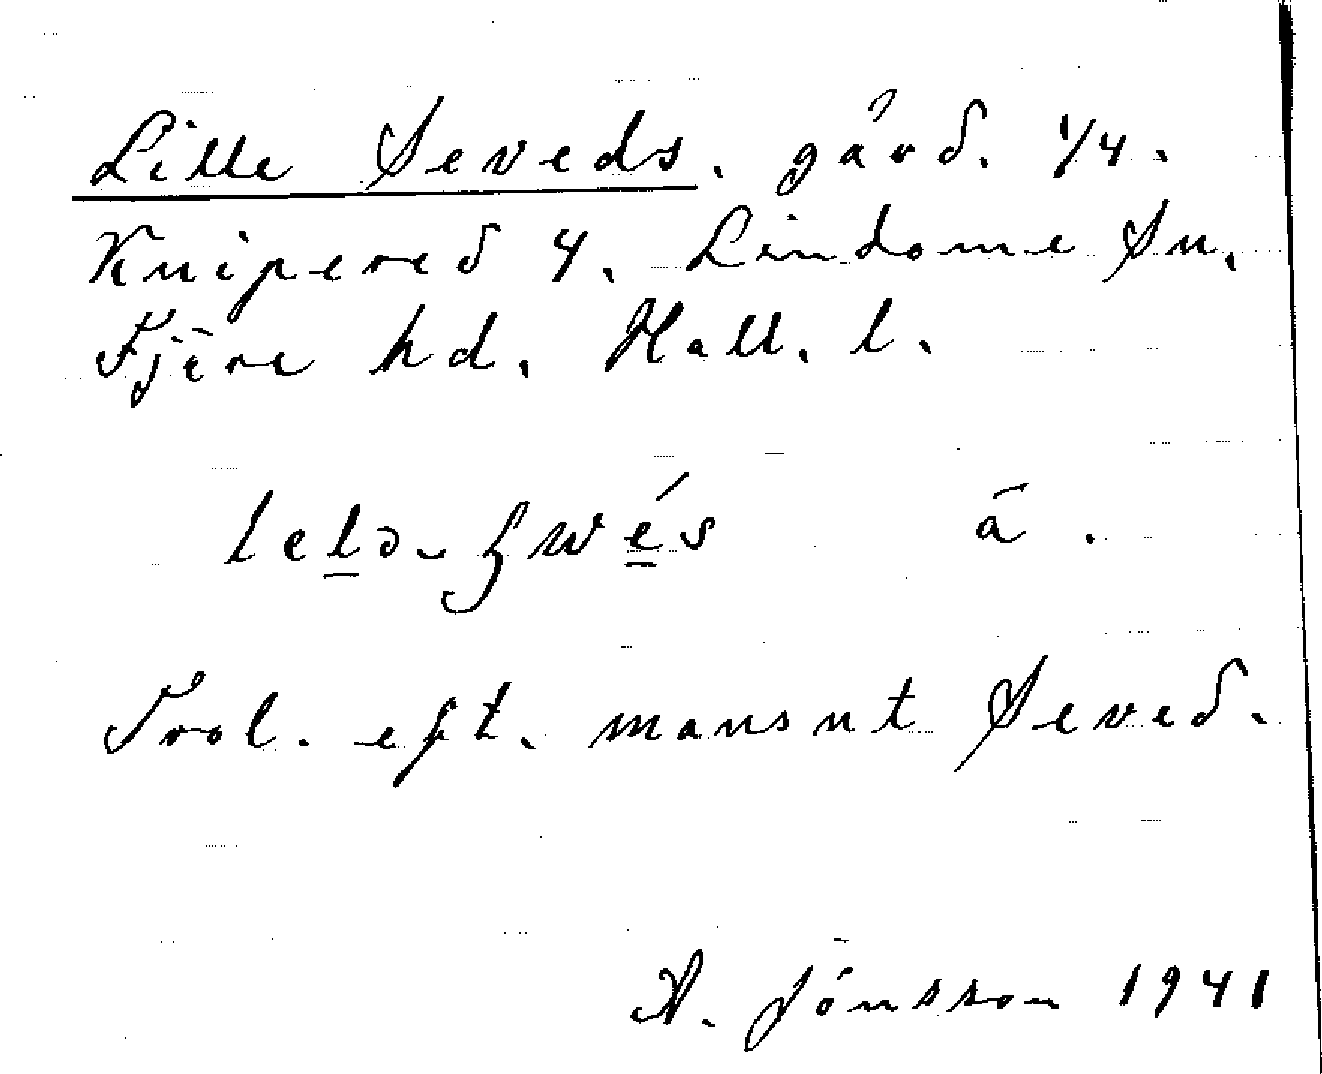 Lille Seveds. gård. 1/4.
Knipered 4. Lindome Sn.
Fjäre hd. Hall. l.
ā.
Trol. eft. mansnt Seved.
A. Jónsson 1941